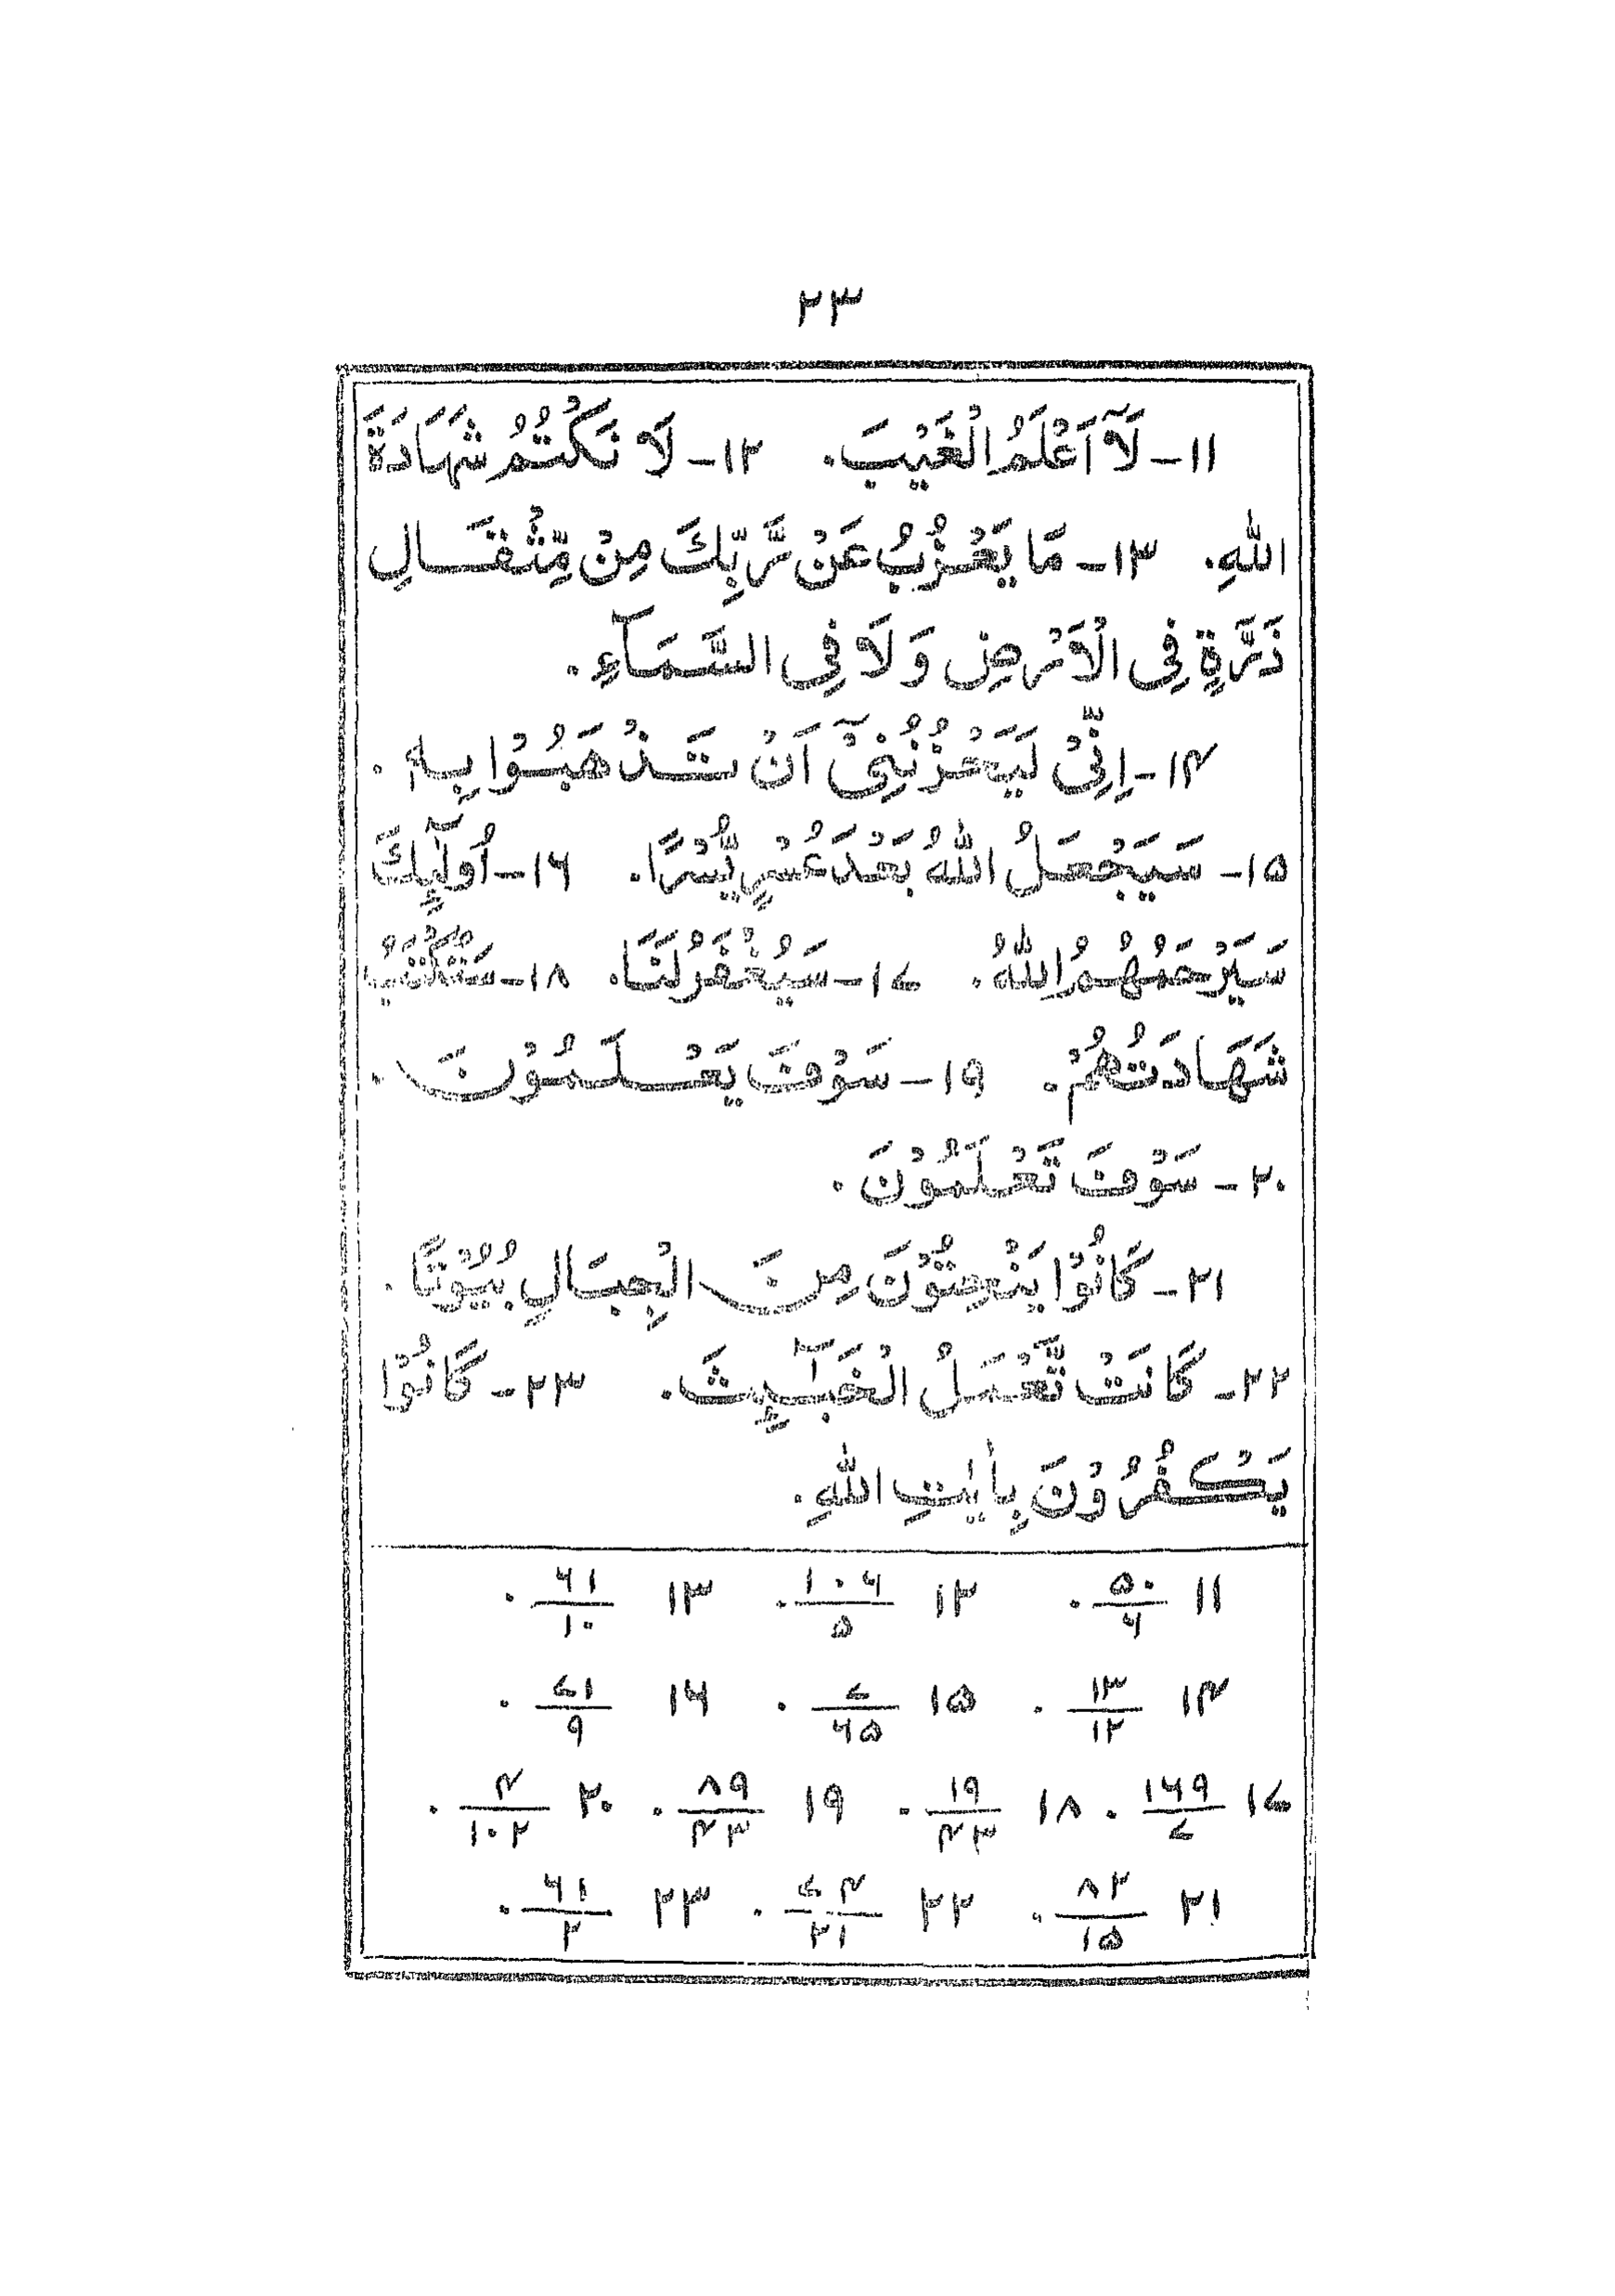 ۲۳
۱۱- لَآ اَعْلَمُ الْغَيْبَ. ۱۲- لَا نَكْتُمُ شَهَادَةَ
اللّٰهِ. ۱۳- مَا يَعْزُبُ عَنْ رَّبِّكَ مِنْ مِّثْقَالِ
ذَرَّةٍ فِى الْاَرْضِ وَلَا فِى السَّمَآءِ.
۱۴- اِنِّىْ لَيَحْزُنُنِىْٓ اَنْ تَذْهَبُوْا بِهٖ.
۱۵- سَيَجْعَلُ اللّٰهُ بَعْدَ عُسْرٍ يُّسْرًا. ۱۶- اُولٰٓئِكَ
سَيَرْحَمُهُمُ اللّٰهُ. ۱۷- سَيُغْفَرُ لَنَا. ۱۸- سَتُكْتَبُ
شَهَادَتُهُمْ. ۱۹- سَوْفَ يَعْلَمُوْنَ.
۲۰- سَوْفَ تَعْلَمُوْنَ.
۲۱- كَانُوْا يَنْحِتُوْنَ مِنَ الْجِبَالِ بُيُوْتًا.
۲۲- كَانَتْ تَّعْمَلُ الْخَبٰٓئِثَ. ۲۳- كَانُوْا
يَكْفُرُوْنَ بِاٰيٰتِ اللّٰهِ.
۱۱ ۵۰/۶. ۱۲ ۱۰۶/۵. ۱۳ ۶۱/۱۰.
۱۴ ۱۳/۱۲. ۱۵ ۷/۶۵. ۱۶ ۷۱/۹.
۱۷ ۱۶۹/۷. ۱۸ ۱۹/۴۳. ۱۹ ۸۹/۴۳. ۲۰ ۴/۱۰۲.
۲۱ ۸۲/۱۵. ۲۲ ۷۴/۲۱. ۲۳ ۶۱/۲.